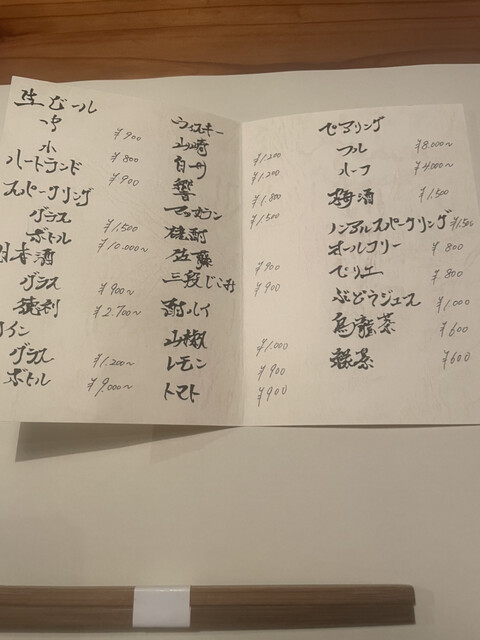 生ビール
中 ¥900
小 ¥800
ハートランド ¥900
スパークリング
グラス ¥1.500
ボトル ¥10.000〜
日本酒
グラス ¥900〜
徳利 ¥2.700〜
ワイン
グラス ¥1.200〜
ボトル ¥9.000〜
ウィスキー
山崎 ¥1.200
白州 ¥1.200
響 ¥1.800
マッカラン ¥1.500
焼酎
佐藤 ¥900
三段じこみ ¥900
酎ハイ
山椒 ¥1.000
レモン ¥900
トマト ¥900
ペアリング
フル ¥8.000〜
ハーフ ¥4.000〜
梅酒 ¥1.500
ノンアルスパークリング ¥1.500
オールフリー ¥800
ペリエ ¥800
ぶどうジュース ¥1.000
烏龍茶 ¥600
緑茶 ¥600